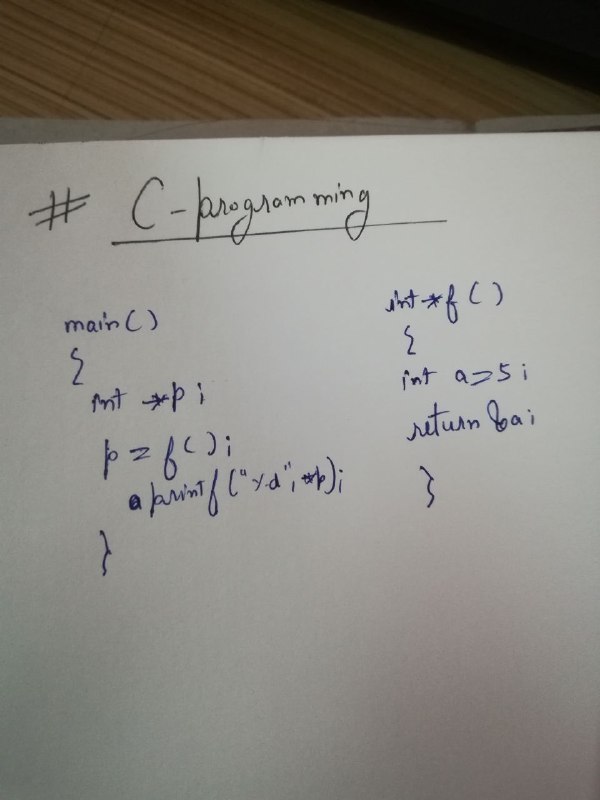 # C-programming
main()
{
int *p;
p = f();
printf("%d", *p);
}
int *f()
{
int a=5;
return &a;
}